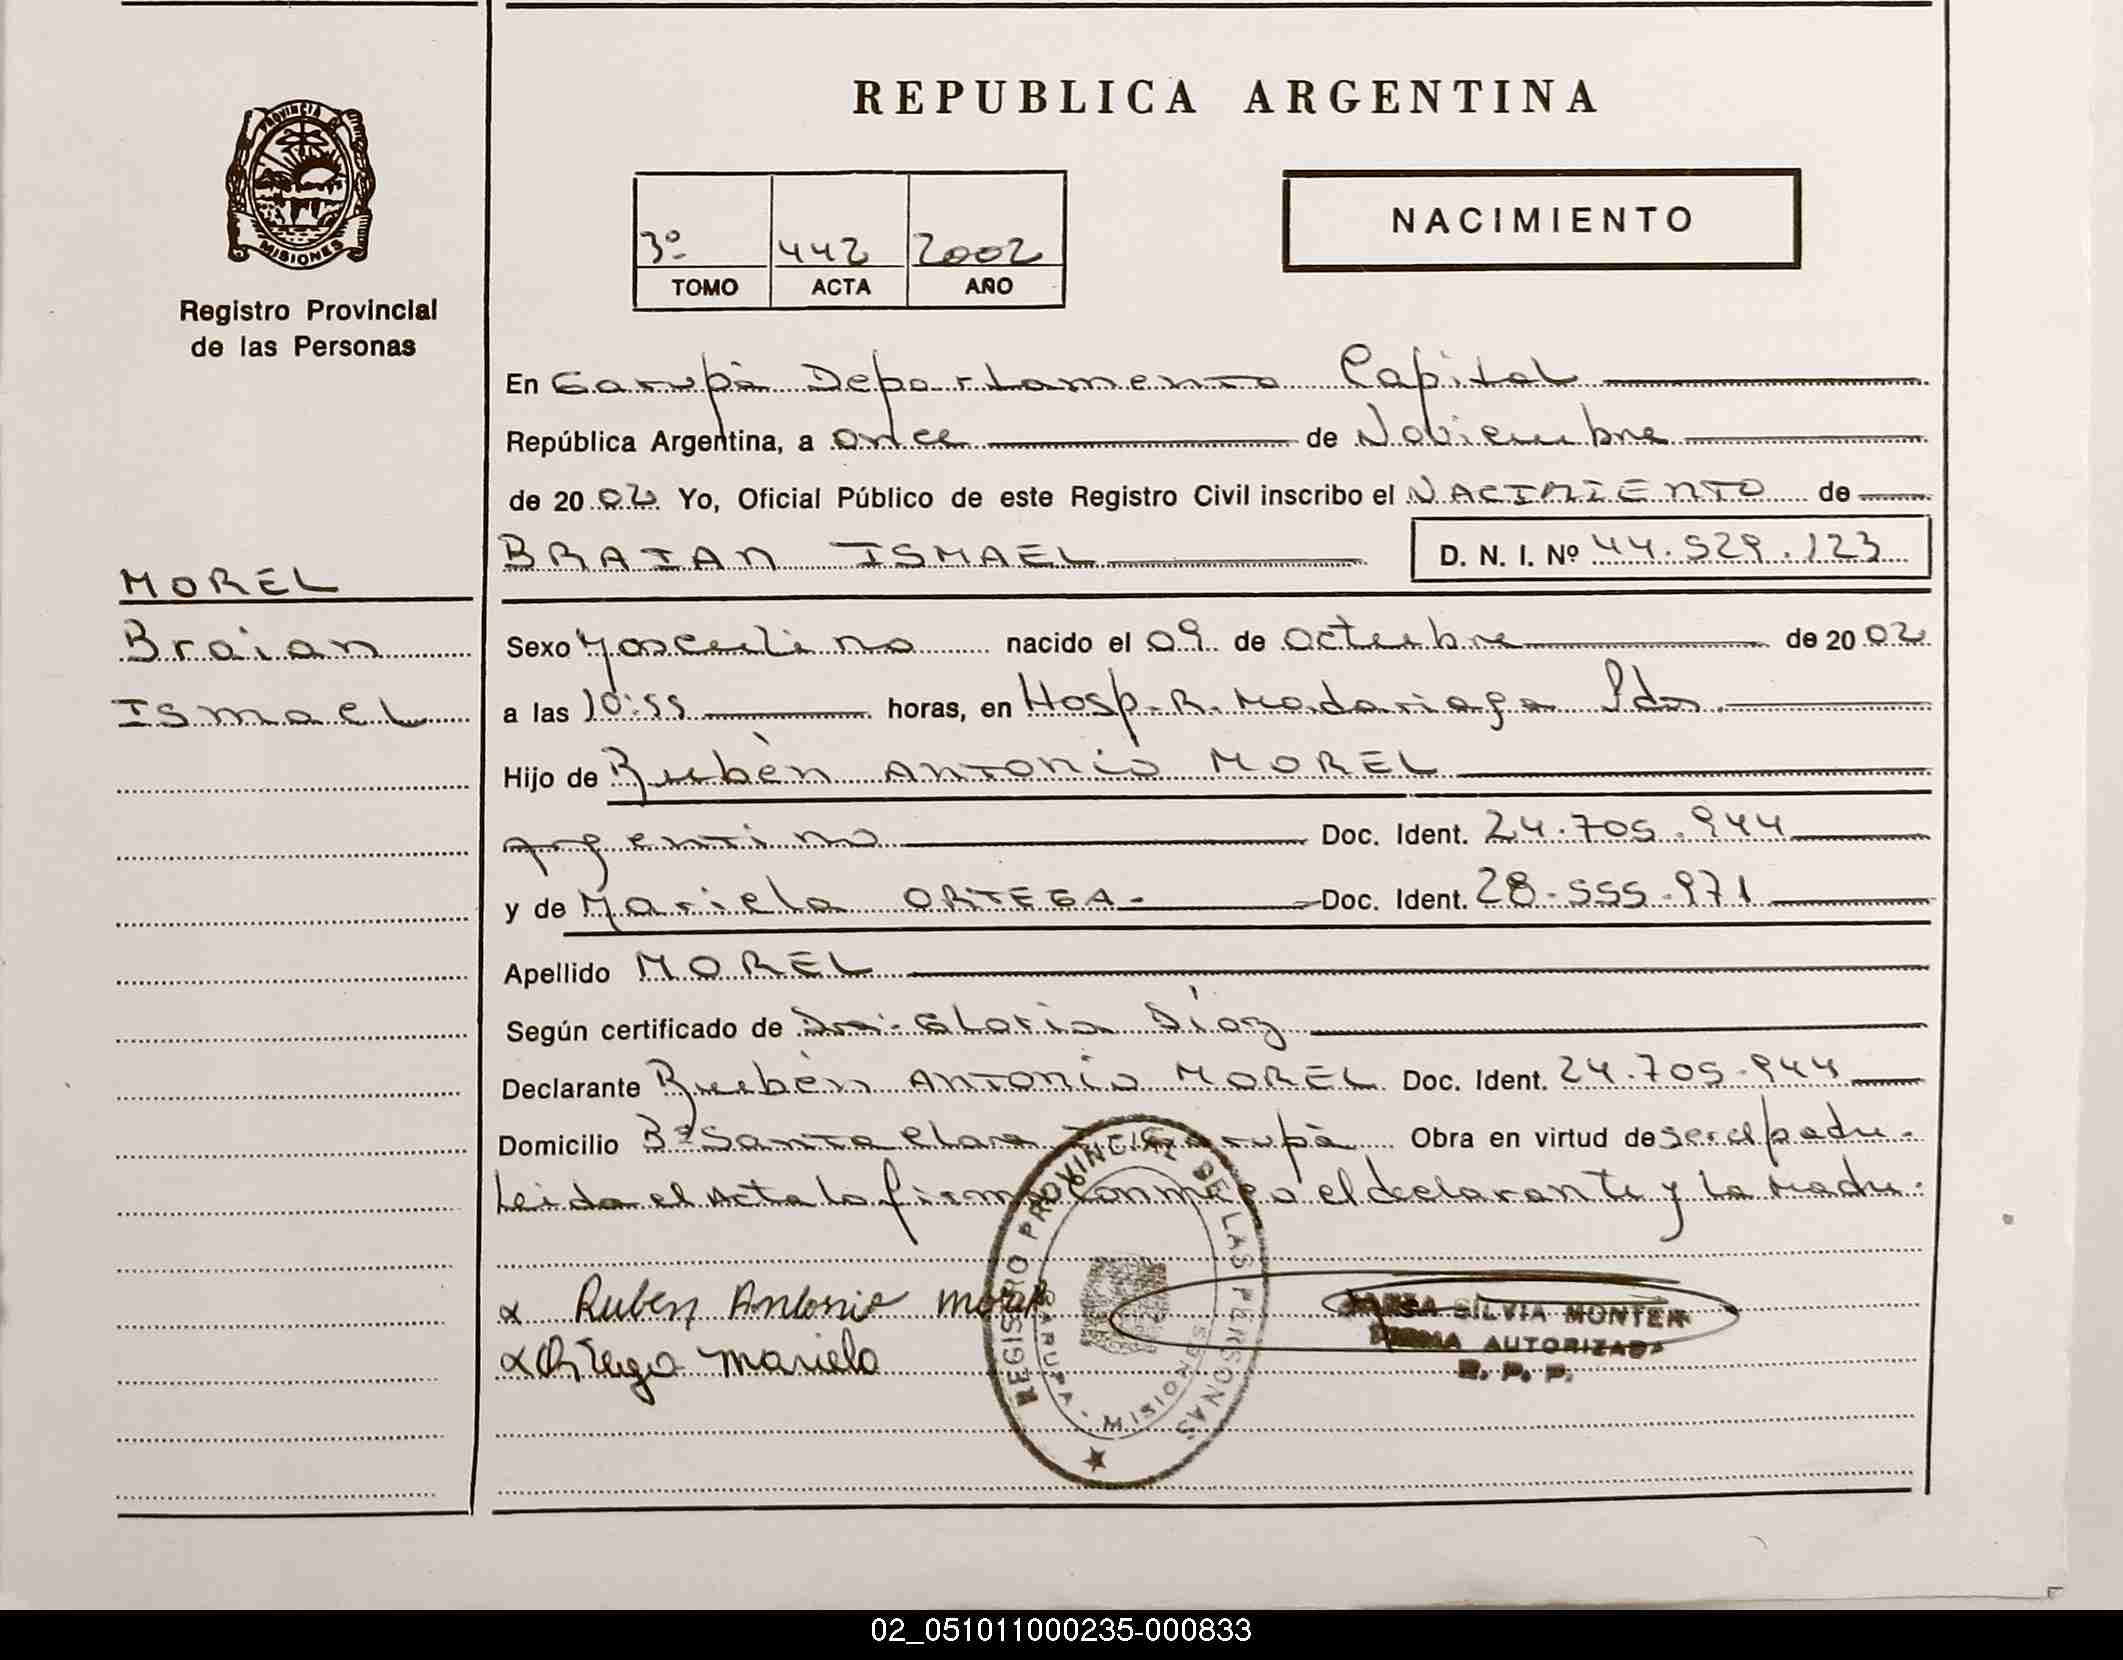 REPUBLICA ARGENTINA
PROVINCIA DE
MISIONES
Registro Provincial
de las Personas
3º 442 2002
TOMO ACTA AÑO
NACIMIENTO
En Garupà Departamento Capital
República Argentina, a once de Noviembre
de 2002 Yo, Oficial Público de este Registro Civil inscribo el NACIMIENTO de
BRAIAN ISMAEL D. N. I. Nº 44.529.123
MOREL
Braian
Ismael
Sexo Masculino nacido el 09 de octubre de 2002
a las 10:55 horas, en Hosp. R. Madariaga Pdas
Hijo de Rubèn ANTONIO MOREL
argentino Doc. Ident. 24.705.944
y de Mariela ORTEGA.- Doc. Ident. 28.555.971
Apellido MOREL
Según certificado de Dra. Gloria Díaz
Declarante Rubèn ANTONIO MOREL Doc. Ident. 24.705.944
Domicilio Bº Santa Clara Garupà Obra en virtud de ser el padre.
Leida el Acta la firman conmigo el declarante y la Madre.
Ruben Antonio morel
Ortega mariela
REGISTRO PROVINCIAL DE LAS PERSONAS
GARUPA - MISIONES
SILVIA MONTER
FIRMA AUTORIZADA
R. P. P.
02_051011000235-000833